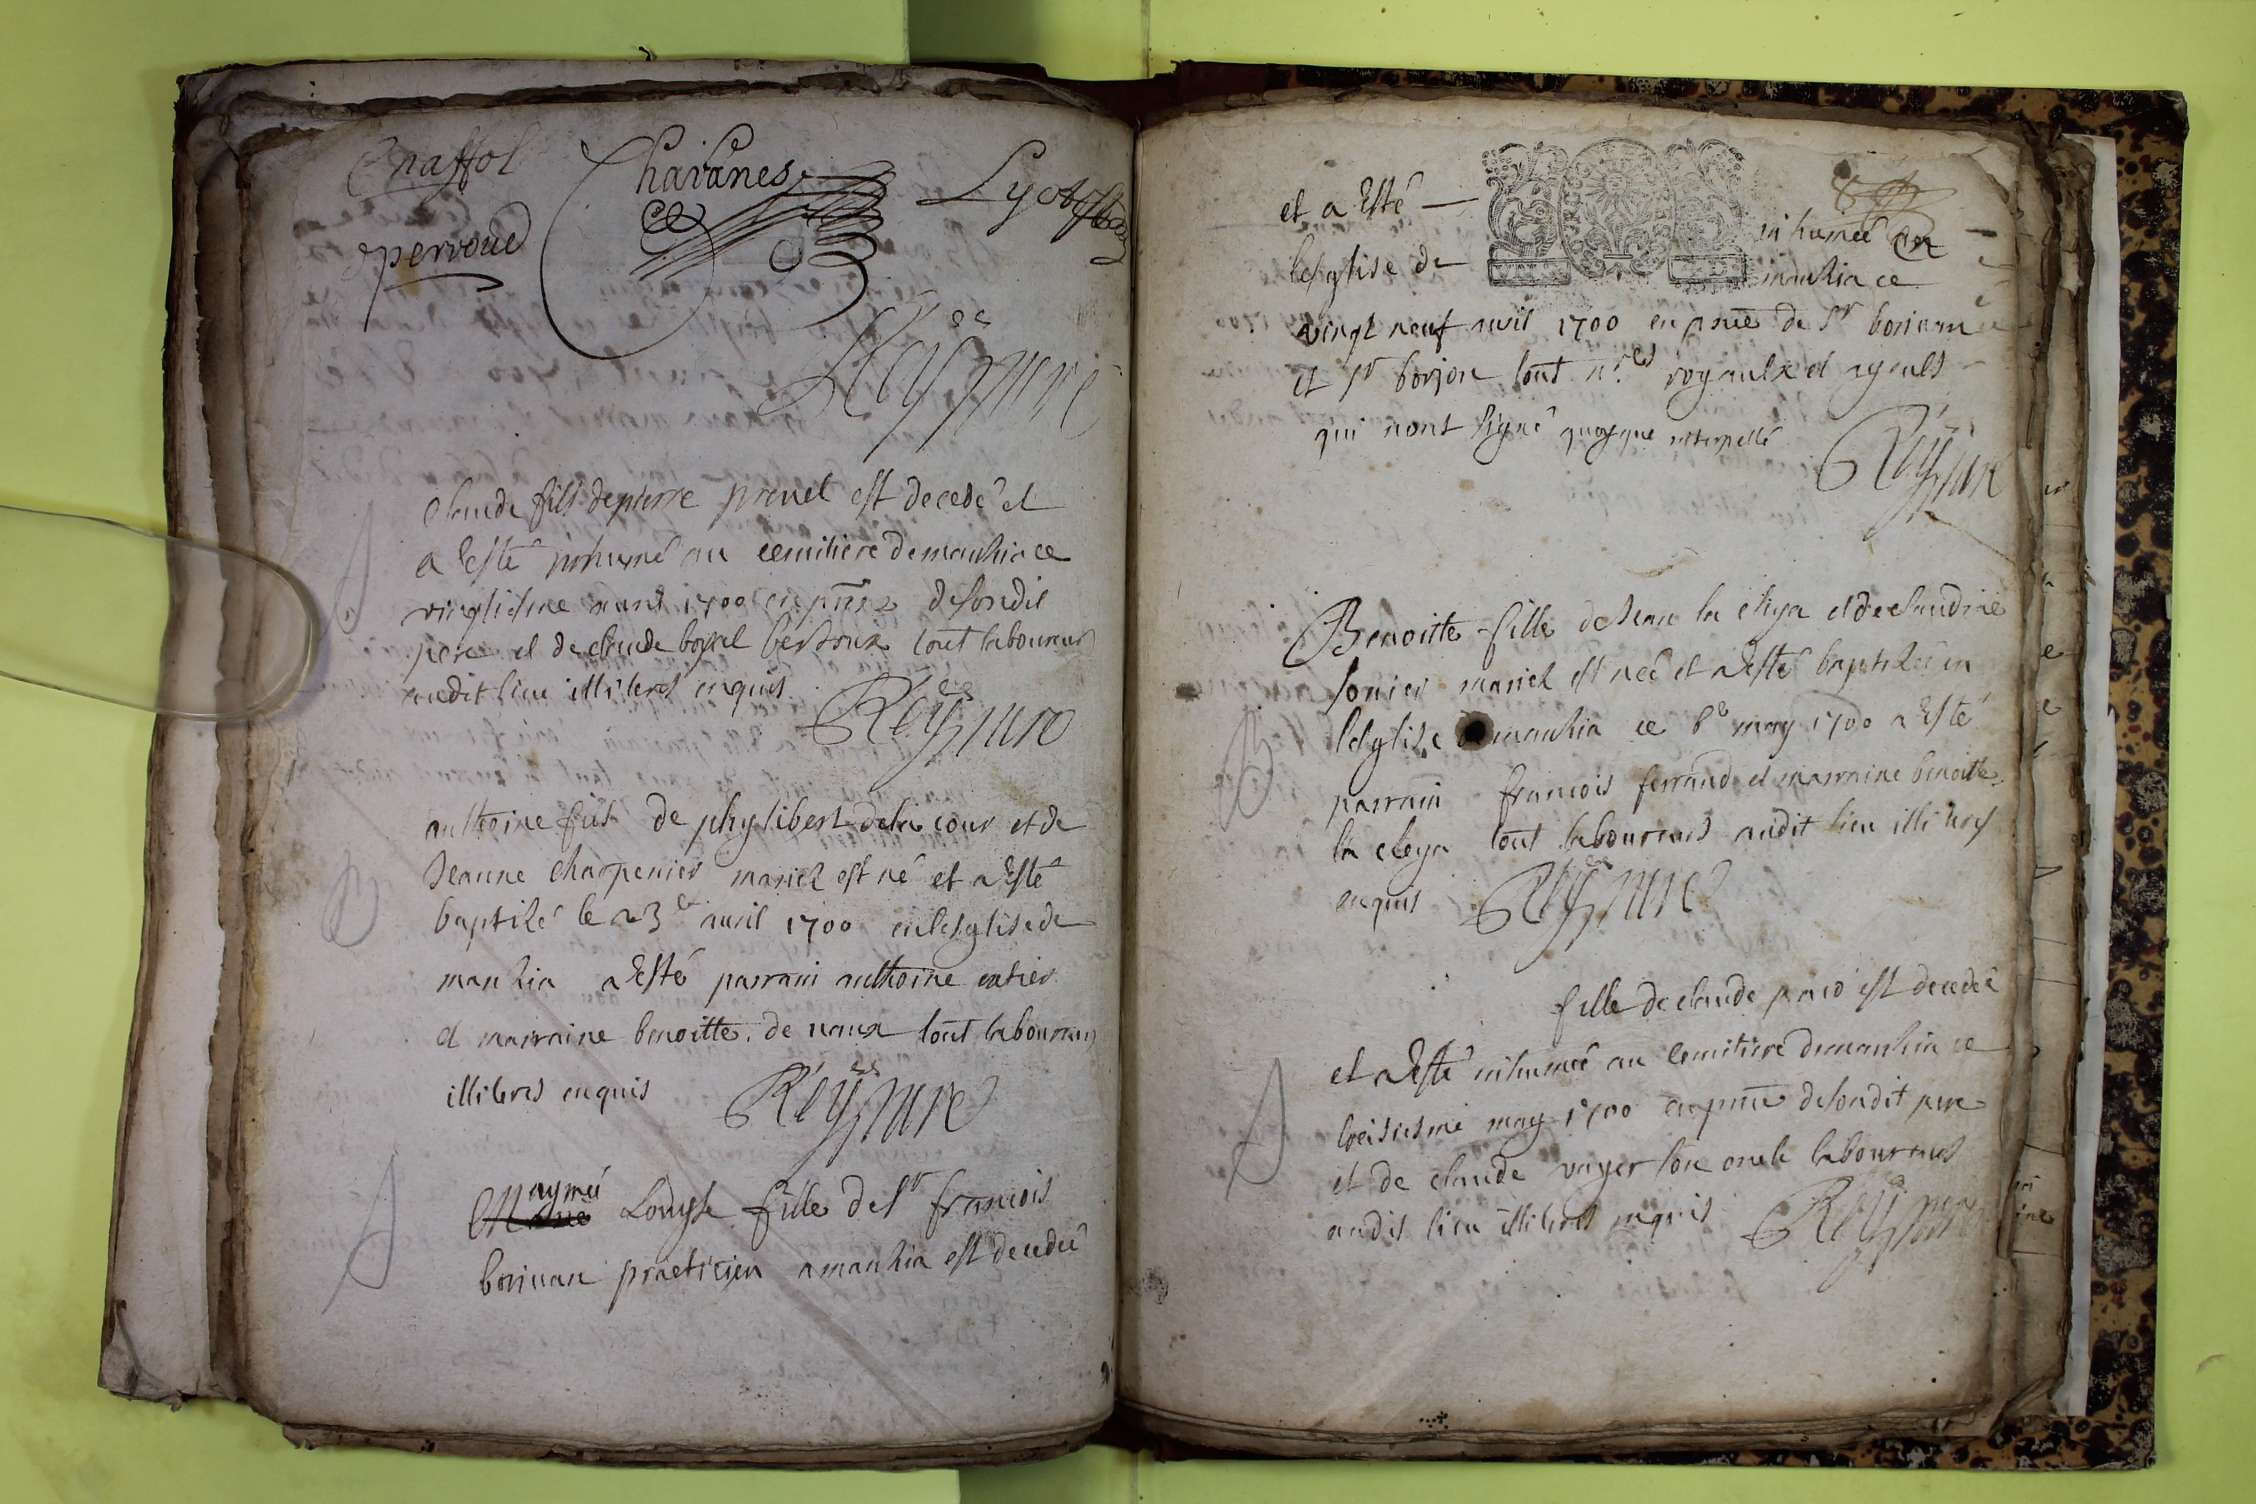 Chavanes
epervoud
Claude fils de pierre pruel est decedé et
a Esté inhumé au cemitiere de manhia ce
vingtiesme mars 1700 en pnce de sondit
pere et de claude borjel bersoux tout laboureurs
audit lieu illiteres enquis
Rey cure
anthoine fils de phylibert dela cour et de
Jeanne charpenier mariez est né et a Esté
baptizé le 23e avril 1700 en lesglise de
manhia a Esté parrain anthoine
et marraine benoitte de vaux tout laboureurs
illiteres enquis
Rey cure
aymeé
Louyse fille de Sr francois
borivan practicien a manhia est decedeé
et a Esté — inhumeé en
lesglise de manhia ce
vingt neuf avril 1700 en pnce de Sr borivan
et Sr borjon tout nres royaulx et ayeuls
qui nont signé quoyque interpellé
Rey cure
Benoitte fille de Jean la cleya et de claudine
sonier mariez est neé et a Esté baptizeé en
lesglise de manhia ce 8e may 1700 a Esté
parrain francois ferrand et marraine benoitte
la cleya tout laboureurs audit lieu illiteres
enquis Rey cure
fille de claude est decedeé
et a Esté inhumeé au cemitiere de manhia ce
treisiesme may 1700 en pnce de sondit pere
et de claude vuyer son oncle laboureurs
audit lieu illiteres enquis Rey cure